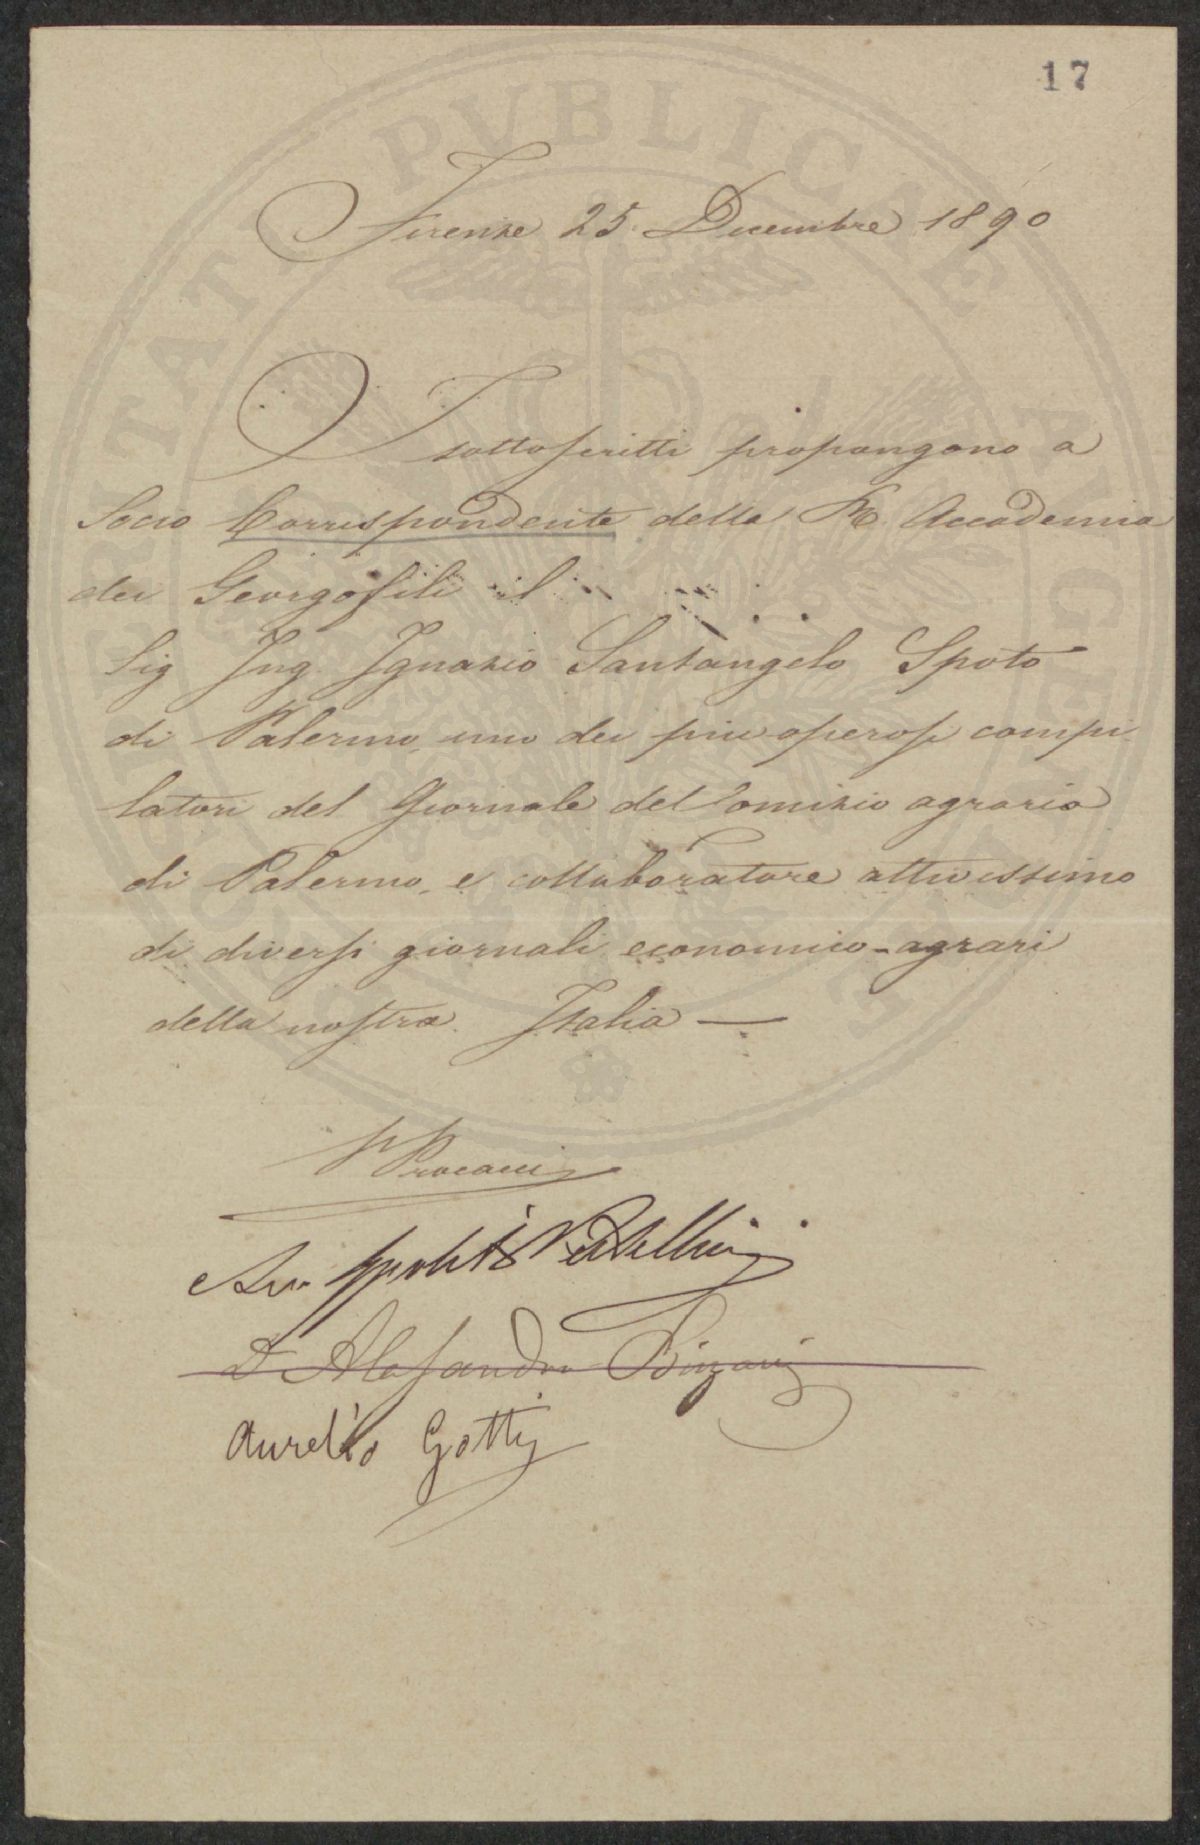 17
Firenze 25 Decembre 1890
I sottoscritti propongono a
Socio Corrispondente della R Accademia
dei Georgofili il
Sig Ing. Ignazio Santangelo Spoto
di Palermo, uno dei piu operosi compi
latori del Giornale del Comizio agrario
di Palermo, e collaboratore attivissimo
di diversi giornali economico-agrari
della nostra Italia —
Procacci
Avv Ippolito Pestellini
D Alessandro Bizzarri
Aurelio Gotti
PVBLICAE